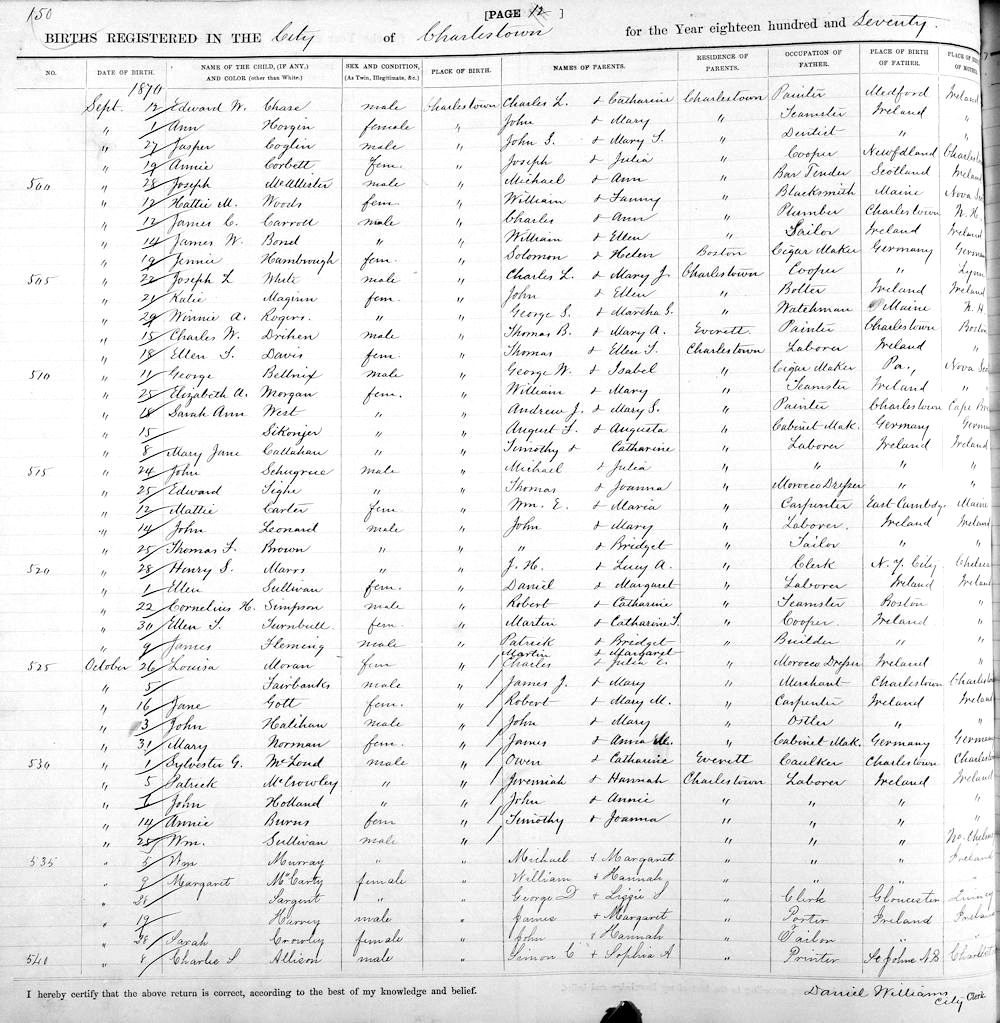 150
[PAGE 12 ]
BIRTHS REGISTERED IN THE City of Charlestown for the Year eighteen hundred and Seventy.
NO. DATE OF BIRTH. NAME OF THE CHILD, (IF ANY,) AND COLOR (other than White.) SEX AND CONDITION, (As Twin, Illegitimate, &c.) PLACE OF BIRTH. NAMES OF PARENTS. RESIDENCE OF PARENTS. OCCUPATION OF FATHER. PLACE OF BIRTH OF FATHER. PLACE OF BIRTH OF MOTHER
1870
Sept. 12 Edward W. Chase male Charlestown Charles L. & Catharine Charlestown Painter Medford Ireland
" 1 Ann Horgin female " John & Mary " Teamster Ireland "
" 27 Jasper Coglin male " John G. & Mary T. " Dentist " "
" 19 Annie Corbett fem. " Joseph & Julia " Cooper Newfdland Charlestown
500 " 28 Joseph McAllister male " Michael & Ann " Bar Tender Scotland Ireland
" 12 Hattie M. Woods fem. " William & Fanny " Blacksmith Maine Nova Sco
" 12 James C. Carroll male " Charles & Ann " Plumber Charlestown N. H.
" 14 James W. Bond " " William & Ellen " Sailor Ireland Ireland
" 19 Jennie Hambrough fem. " Solomon & Helen Boston Cigar Maker Germany German
505 " 22 Joseph L White male " Charles L. & Mary J. Charlestown Cooper " Lynn
" 21 Katie Maginn fem. " John & Ellen " Bolter Ireland Ireland
" 29 Winnie A. Rogers. " " George S. & Martha S. " Watchman Maine N. H
" 15 Charles W. Drihen male " Thomas B. & Mary A. Everett. Painter Charlestown Boston
" 18 Ellen T. Davis fem. " Thomas & Ellen T. Charlestown Laborer Ireland "
510 " 11 George Bellnix male " George W. & Isabel " Cigar Maker Pa., Nova Sco
" 25 Elizabeth A. Morgan fem. " William & Mary " Teamster Ireland "
" 18 Sarah Ann West " " Andrew J. & Mary S. " Painter Charlestown Cape Bre
" 15 Sikonjer " " August F. & Augusta " Cabinet Mak. Germany Germ
" 8 Mary Jane Callahan " " Timothy & Catharine " Laborer Ireland Ireland
515 " 24 John Schugrue male " Michael & Julia " " " "
" 25 Edward Tighe " " Thomas & Joanna " Morocco Dresser " "
" 12 Mattie Carter fem " Wm. E. & Maria " Carpenter East Cambdge Maine
" 14 John Leonard male " John & Mary " Laborer. Ireland Ireland
" 25 Thomas F. Brown " " " & Bridget " Tailor " "
520 " 28 Henry S. Marrs " " J. H. & Lucy A. " Clerk N. Y. City Chelsea
" 1 Ellen Sullivan fem. " Daniel & Margaret " Laborer Ireland Ireland
" 22 Cornelius H. Simpson male " Robert & Catharine " Teamster Boston "
" 30 Ellen T. Turnbull. fem. " Martin & Catharine T. " Cooper. Ireland "
" 9 James Fleming male " Patrick & Bridget " Builder " "
Martin & Margaret
525 October 26 Louisa Moran fem " Charles & Julia E. " Morocco Dresser Ireland "
" 5 Fairbanks male " James J. & Mary " Merchant Charlestown Charlestown
" 16 Jane Gott fem. " Robert & Mary M. " Carpenter Ireland Ireland
" 3 John Halihan male " John & Mary " Ostler " "
" 31 Mary Norman fem. " James & Anna M. " Cabinet Mak. Germany Germany
530 " 1 Sylvester G. McLoud male " Owen & Catharine Everett Caulker Charlestown Charlestown
" 5 Patrick McCrowley " " Jeremiah & Hannah Charlestown Laborer Ireland Ireland
" 1 John Holland " " John & Annie " " " "
" 14 Annie Burns fem " Timothy & Joanna " " " "
" 25 Wm. Sullivan male " " " " No. Chelsea
535 " 5 Wm Murray " " Michael & Margaret " " " Ireland
" 9 Margaret McCarty female " William & Hannah " " " "
" 21 Sargent " " George D & Lizzie S " Clerk Gloucester Quincy
" 19 Harvey male " James & Margaret " Porter Ireland Ireland
" 28 Sarah Crowley female " John & Hannah " Tailor " "
540 " 8 Charlie S Allison male " Simon C & Sophia A " Printer St Johns N.B Charlest
I hereby certify that the above return is correct, according to the best of my knowledge and belief.
Daniel Williams City Clerk.